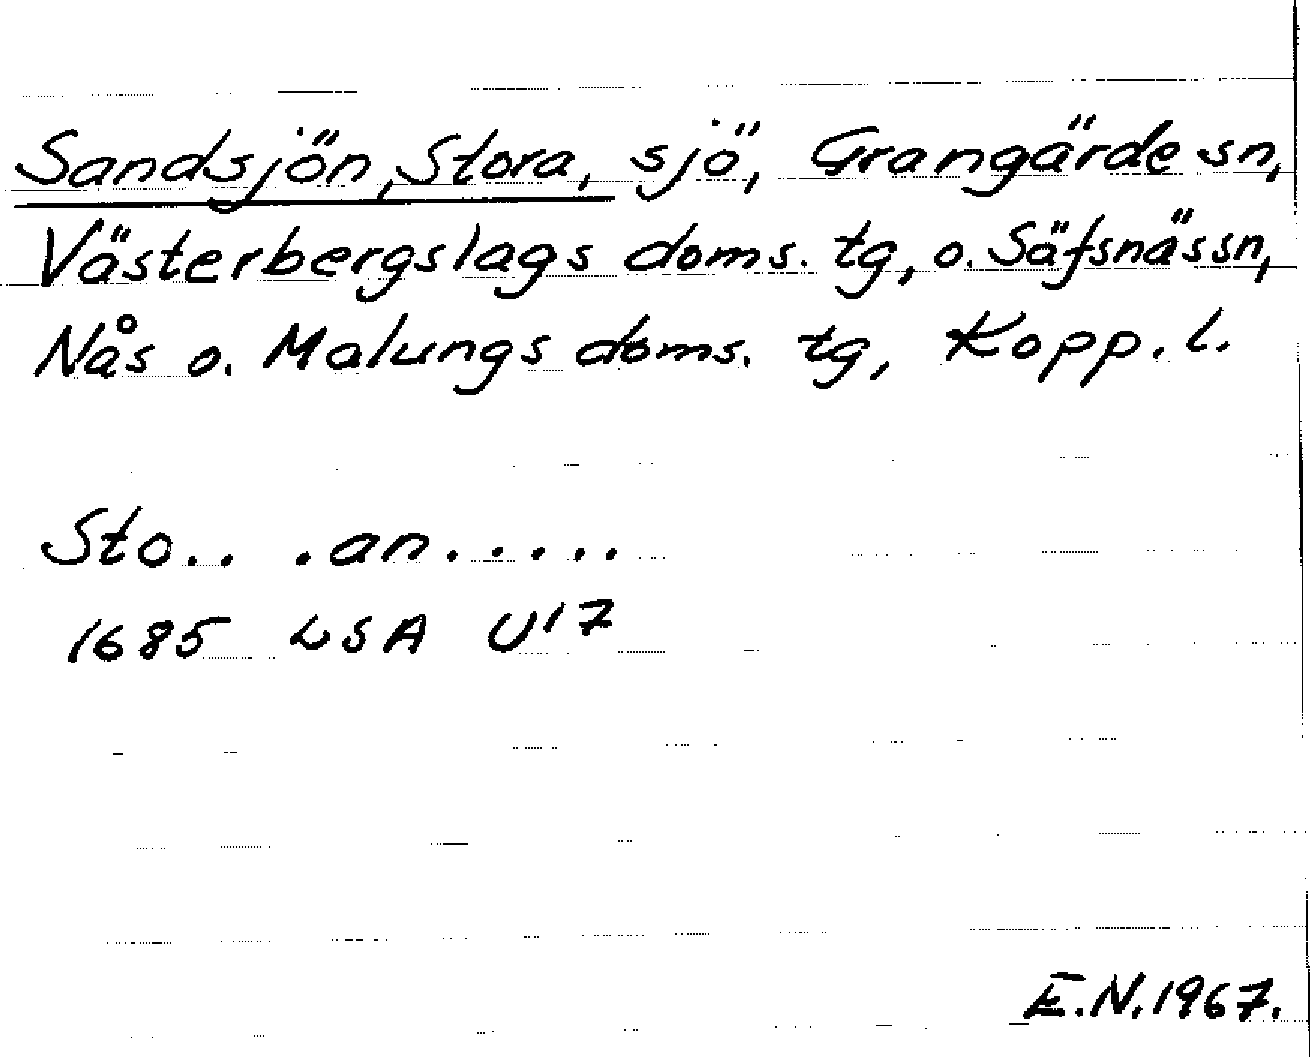 Sandsjön, Stora, sjö, Grangärde sn,
Västerbergslags doms. tg, o. Säfsnäs sn,
Nås o. Malungs doms. tg, Kopp. l.
Sto.. .an.....
1685 LSA U17
E.N. 1967.